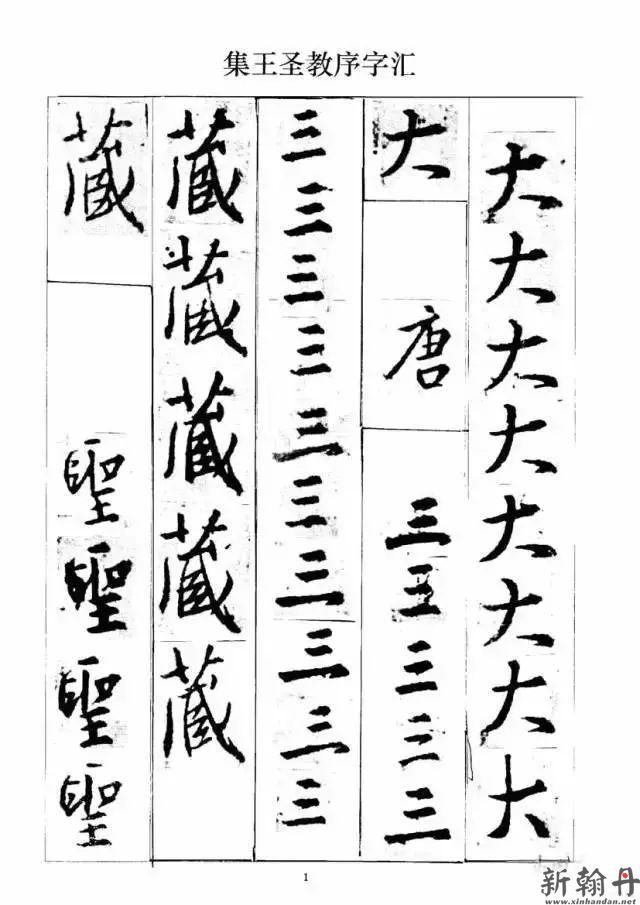 集王圣教序字汇
大大大大大大大大
大
唐
三三三三三
三三三三三三三三三三
藏藏藏藏藏
藏
聖聖聖聖
1
新翰丹
www.xinhandan.net